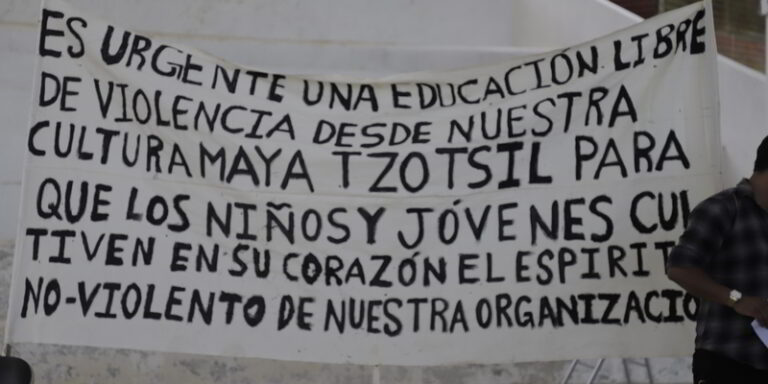 ES URGENTE UNA EDUCACIÓN LIBRE
DE VIOLENCIA DESDE NUESTRA
CULTURA MAYA TZOTSIL PARA
QUE LOS NIÑOS Y JÓVENES CUL
TIVEN EN SU CORAZÓN EL ESPIRIT
NO-VIOLENTO DE NUESTRA ORGANIZACIO